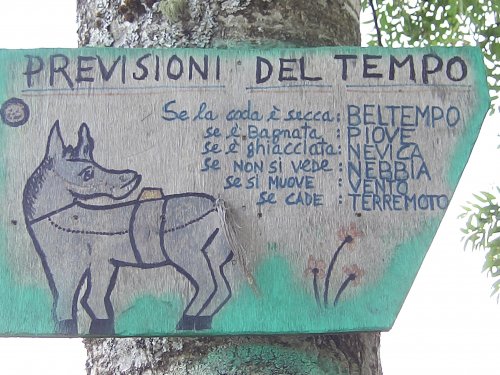 PREVISIONI DEL TEMPO
Se la coda è secca: BELTEMPO
se è Bagnata : PIOVE
se è ghiacciata: NEVICA
se NON SI VEDE : NEBBIA
se SI MUOVE : VENTO
se CADE : TERREMOTO